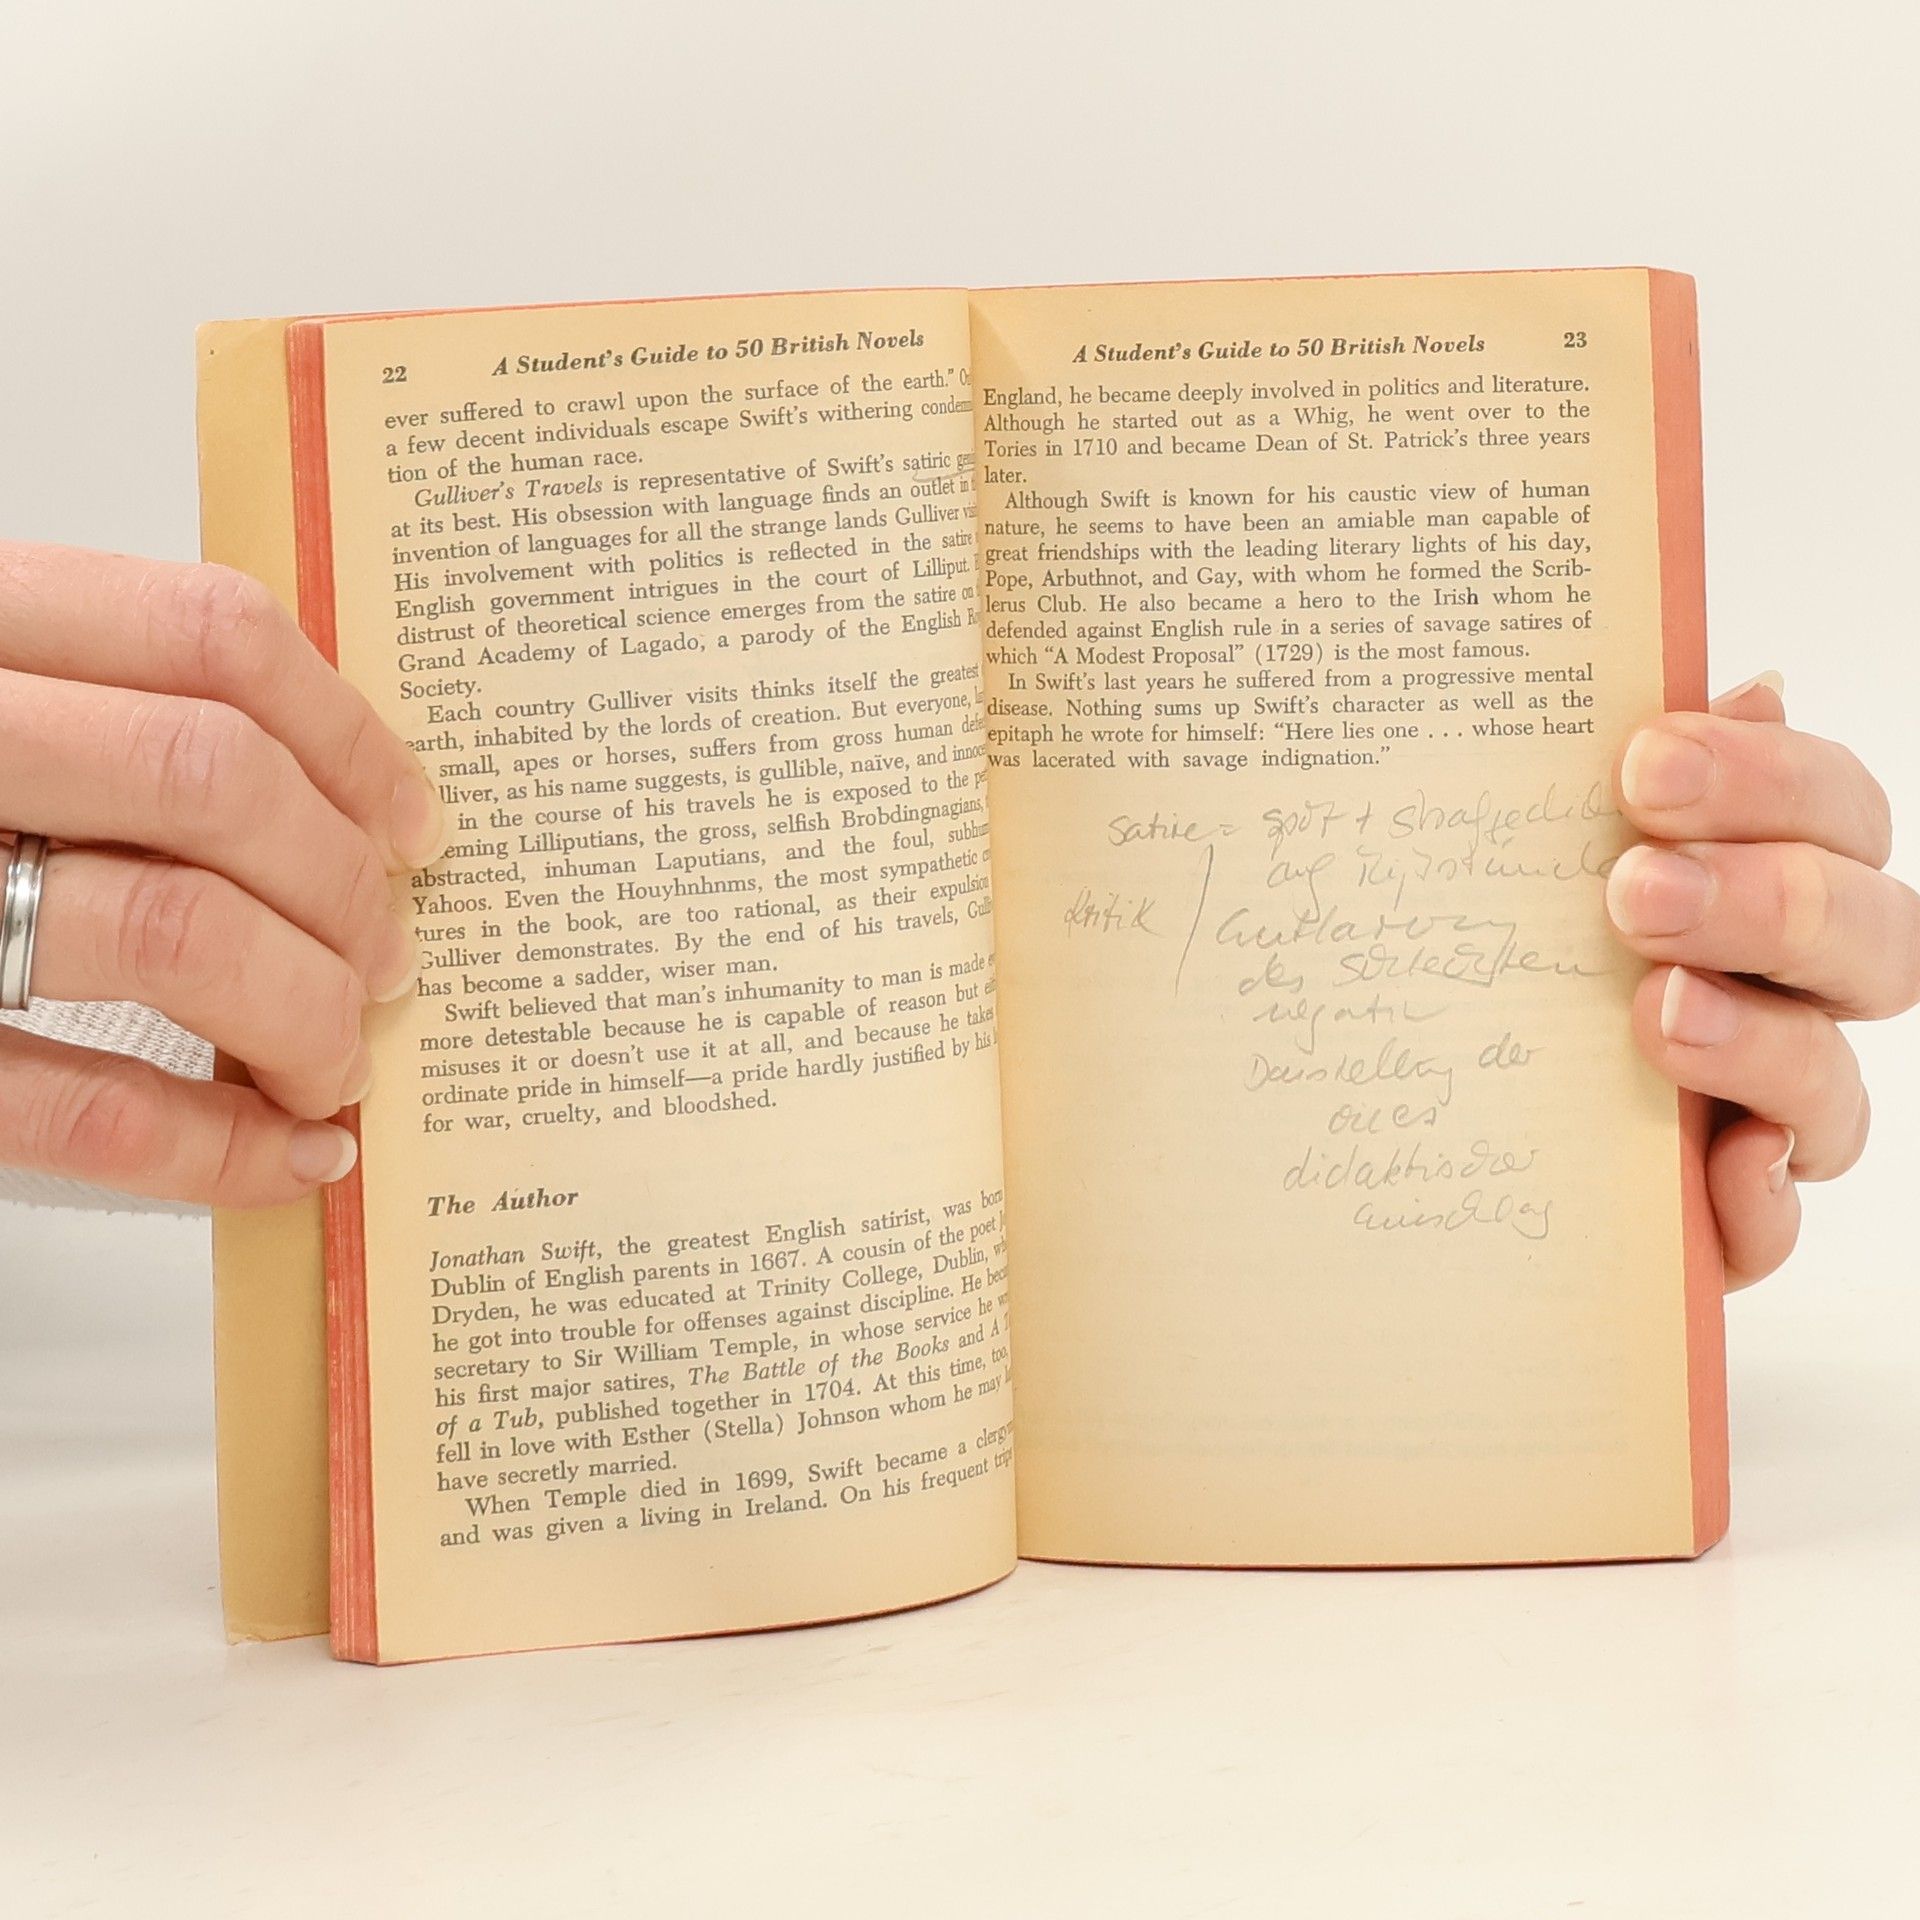 22 A Student's Guide to 50 British Novels
ever suffered to crawl upon the surface of the earth."
a few decent individuals escape Swift's withering condem
tion of the human race.
Gulliver's Travels is representative of Swift's satiric
at its best. His obsession with language finds an outlet in
invention of languages for all the strange lands Gulliver
His involvement with politics is reflected in the satire
English government intrigues in the court of Lilliput.
distrust of theoretical science emerges from the satire on
Grand Academy of Lagado, a parody of the English
Society.
Each country Gulliver visits thinks itself the greatest
earth, inhabited by the lords of creation. But everyone,
small, apes or horses, suffers from gross human
lliver, as his name suggests, is gullible, naïve, and
in the course of his travels he is exposed to the
eming Lilliputians, the gross, selfish Brobdingnagians,
abstracted, inhuman Laputians, and the foul,
Yahoos. Even the Houyhnhnms, the most sympathetic
tures in the book, are too rational, as their expulsion
Gulliver demonstrates. By the end of his travels,
has become a sadder, wiser man.
Swift believed that man's inhumanity to man is made
more detestable because he is capable of reason but
misuses it or doesn't use it at all, and because he takes
ordinate pride in himself—a pride hardly justified by his
for war, cruelty, and bloodshed.
The Author
Jonathan Swift, the greatest English satirist, was born
Dublin of English parents in 1667. A cousin of the poet
Dryden, he was educated at Trinity College, Dublin,
he got into trouble for offenses against discipline. He
secretary to Sir William Temple, in whose service he
his first major satires, The Battle of the Books and A
of a Tub, published together in 1704. At this time, too,
fell in love with Esther (Stella) Johnson whom he may
have secretly married.
When Temple died in 1699, Swift became a
and was given a living in Ireland. On his frequent
A Student's Guide to 50 British Novels 23
England, he became deeply involved in politics and literature.
Although he started out as a Whig, he went over to the
Tories in 1710 and became Dean of St. Patrick's three years
later.
Although Swift is known for his caustic view of human
nature, he seems to have been an amiable man capable of
great friendships with the leading literary lights of his day,
Pope, Arbuthnot, and Gay, with whom he formed the Scrib-
lerus Club. He also became a hero to the Irish whom he
defended against English rule in a series of savage satires of
which "A Modest Proposal" (1729) is the most famous.
In Swift's last years he suffered from a progressive mental
disease. Nothing sums up Swift's character as well as the
epitaph he wrote for himself: "Here lies one . . . whose heart
was lacerated with savage indignation."
Satire = Spott +
auf
Kritik
des Schlechten
negativ
Darstellung der
didaktischer
Einschlag